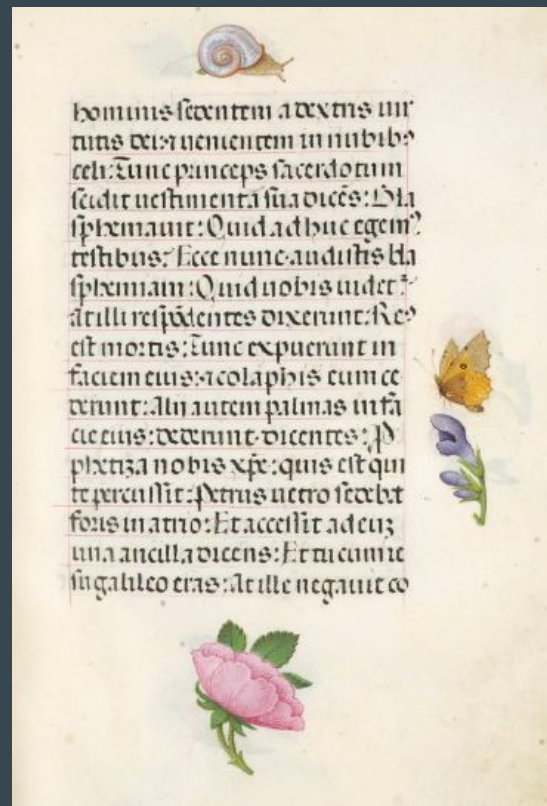 hominis sedentem a dextris uir
tutis dei: ⁊ uenientem in nubibꝰ
celi: Tunc princeps sacerdotum
scidit uestimenta sua dicēs: Bla
sphemauit: Quid adhuc egemꝰ
testibus? Ecce nunc audistis bla
sphemiam: Quid nobis uidet᷑?
At illi respōdentes dixerunt: Reꝰ
est mortis: Tunc expuerunt in
faciem eius: ⁊ colaphis eum ce
derunt: Alij autem palmas in fa
cie eius: dederunt dicentes: P
phetiza nobis xp̄e: quis est qui
te percussit: Petrus uero sedebat
foris in atrio: Et accessit ad euꝫ
una ancilla dicens: Et tu cum ie
su galileo eras: At ille negauit co